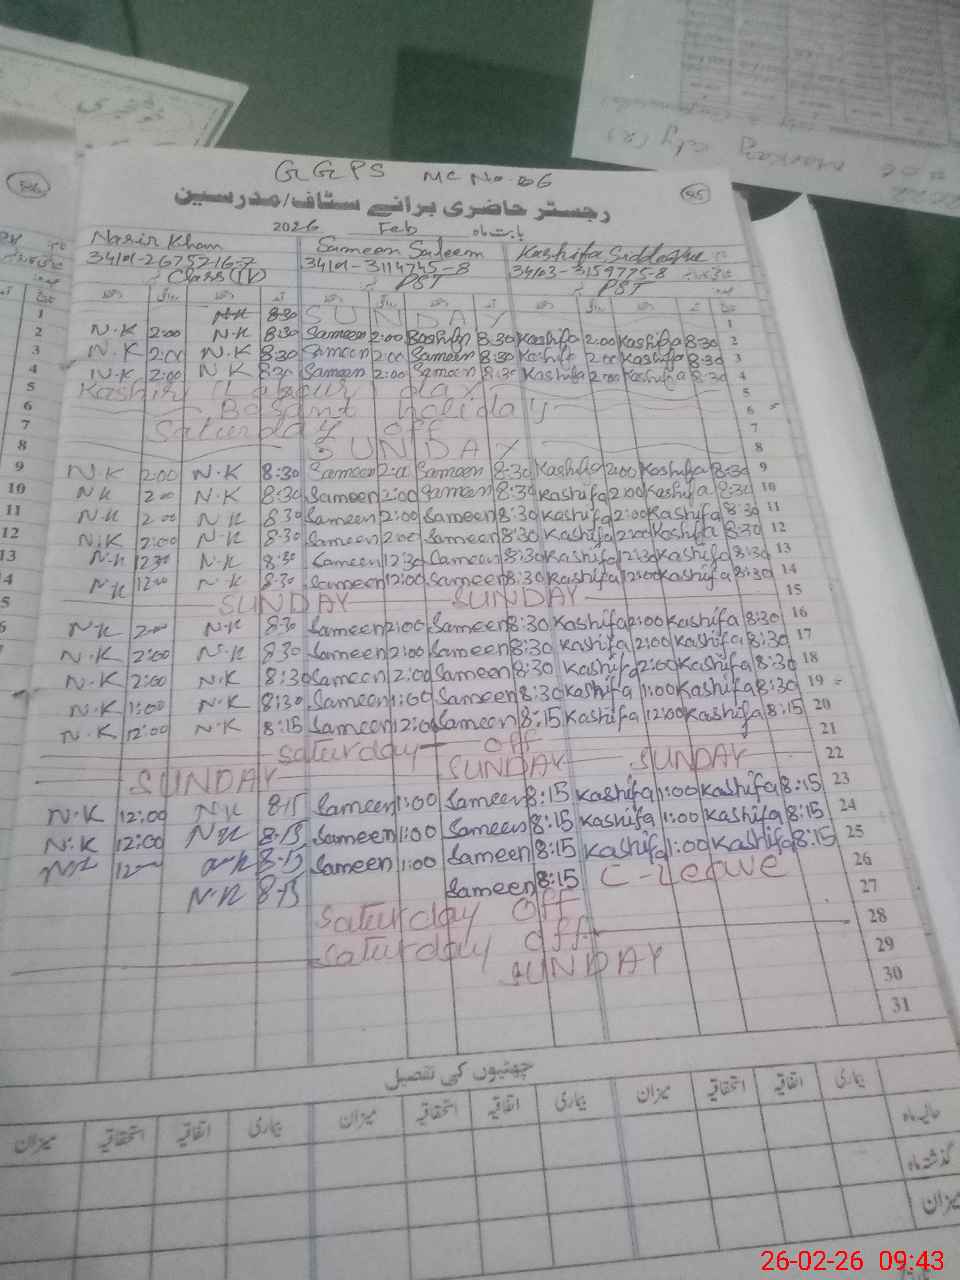 GGPS MC No. 06
رجسٹر حاضری برائے سٹاف/مدرسین
2026 Feb بابت ماہ
Nasir Khan Sameen Saleem Kashifa Siddique
34101-2675216-7 34101-3114745-8 34103-3159775-8
Class (IV) PST PST
1 N.K 8:30 SUNDAY 1
2 N.K 2:00 N.K 8:30 Sameen 2:00 Kashifa 8:30 Kashifa 2:00 Kashifa 8:30 2
3 N.K 2:00 N.K 8:30 Sameen 2:00 Sameen 8:30 Kashifa 2:00 Kashifa 8:30 3
4 N.K 2:00 N K 8:30 Sameen 2:00 Sameen 8:30 Kashifa 2:00 Kashifa 8:30 4
5 Kashmir day 5
6 Basant holiday 6
7 Saturday off 7
8 SUNDAY 8
9 N.K 2:00 N.K 8:30 Sameen 2:00 Sameen 8:30 Kashifa 2:00 Kashifa 8:30 9
10 N K 2:00 N.K 8:30 Sameen 2:00 Sameen 8:30 Kashifa 2:00 Kashifa 8:30 10
11 N.K 2:00 N.K 8:30 Sameen 2:00 Sameen 8:30 Kashifa 2:00 Kashifa 8:30 11
12 N.K 2:00 N.K 8:30 Sameen 2:00 Sameen 8:30 Kashifa 2:00 Kashifa 8:30 12
13 N.K 12:30 N.K 8:30 Sameen 12:30 Sameen 8:30 Kashifa 12:30 Kashifa 8:30 13
14 N.K 12:00 N.K 8:30 Sameen 12:00 Sameen 8:30 Kashifa 12:00 Kashifa 8:30 14
SUNDAY SUNDAY 15
N.K 2:00 N.K 8:30 Sameen 2:00 Sameen 8:30 Kashifa 2:00 Kashifa 8:30 16
N.K 2:00 N.K 8:30 Sameen 2:00 Sameen 8:30 Kashifa 2:00 Kashifa 8:30 17
N.K 2:00 N.K 8:30 Sameen 2:00 Sameen 8:30 Kashifa 2:00 Kashifa 8:30 18
N.K 1:00 N.K 8:30 Sameen 1:00 Sameen 8:30 Kashifa 1:00 Kashifa 8:30 19
N.K 12:00 N.K 8:15 Sameen 12:00 Sameen 8:15 Kashifa 12:00 Kashifa 8:15 20
Saturday off 21
SUNDAY SUNDAY SUNDAY 22
N.K 12:00 N.K 8:15 Sameen 1:00 Sameen 8:15 Kashifa 1:00 Kashifa 8:15 23
N.K 12:00 N.K 8:15 Sameen 1:00 Sameen 8:15 Kashifa 1:00 Kashifa 8:15 24
N.K 12:00 N.K 8:15 Sameen 1:00 Sameen 8:15 Kashifa 1:00 Kashifa 8:15 25
N.K 8:15 Sameen 8:15 C-Leave 26
Saturday off 27
Saturday off 28
SUNDAY 29
30
31
چھٹیوں کی تفصیل
بیماری اتفاقیہ استحقاقیہ میزان بیماری اتفاقیہ استحقاقیہ میزان بیماری اتفاقیہ استحقاقیہ میزان
حالیہ ماہ
گذشتہ ماہ
میزان
26-02-26 09:43